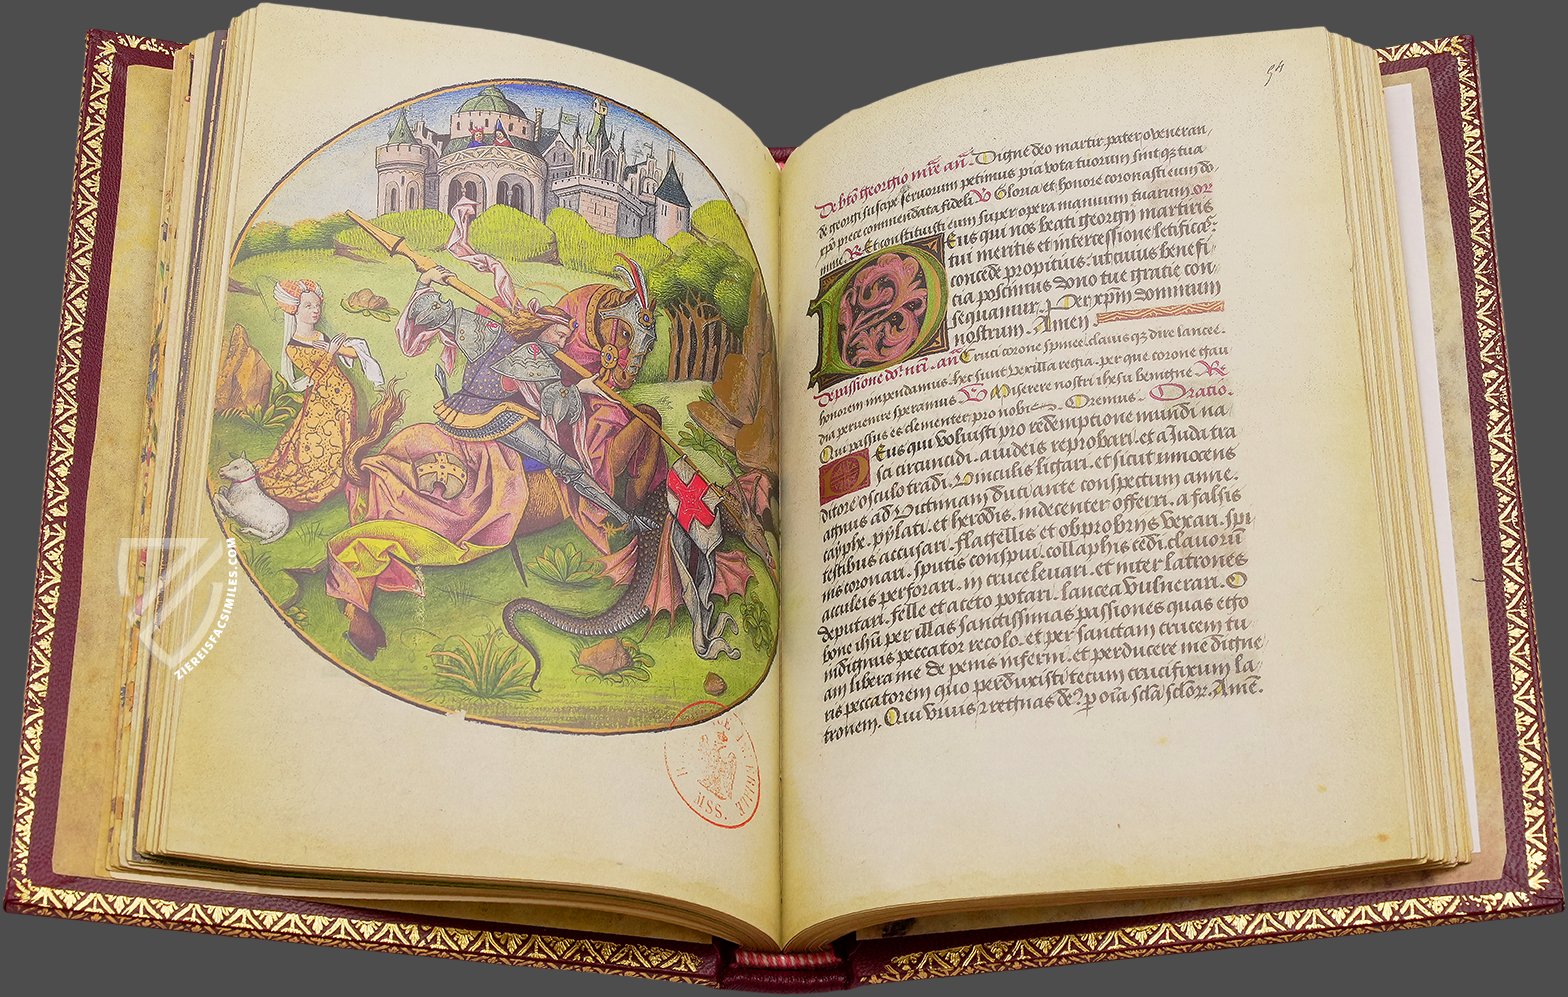 ZIEREISFACSIMILES.COM
MSS.
94
De bto georgio mre an. Digne deo martir pater o veneran
de georgi suscipe servorum petimus pia vota tuorum sint qz tua
xpo prece commendata fideli. V Gloria et honore coronasti eum do
mine. R Et constituisti eum super opera manuum tuarum. or
Deus qui nos beati georgii martiris
tui meritis et intercessione letificas:
concede propitius. ut cuius benefi
cia poscimus dono tue gratie con
sequamur. Per xpm dominum
nostrum. Amen.
De passione do. nri. an Cruci corone spinee. clavis qz dire lancee.
honorem impendamus. hec sunt vexilla regia. per que corone gau
dia pervenire speramus. V Miserere nostri ihesu benigne. Re
Qui passus es clementer pro nobis. Oremus. Oratio.
Deus qui voluisti pro redemptione mundi na
sci circuncidi. a iudeis reprobari. et a Iuda tra
ditore osculo tradi. Vinculis ligari. et sicut innocens
agnus ad Victimam duci ante conspectum anne.
cayphe. pylati. et herodis. indecenter offerri. a falsis
testibus accusari. flagellis et obprobriis vexari. spi
nis coronari. sputis conspui. collaphis cedi. clavorum
aculeis perforari. in cruce levari. et inter latrones
deputari. felle et aceto potari. lancea vulnerari. O
bone ihesu per illas sanctissimas passiones quas ego
indignus peccator recolo. et per sanctam crucem tu
am libera me de penis inferni. et perducere me digne
ris peccatorem quo perduxisti tecum crucifixum la
tronem. Qui vivis z regnas de. p oia scla sclor. Amen.